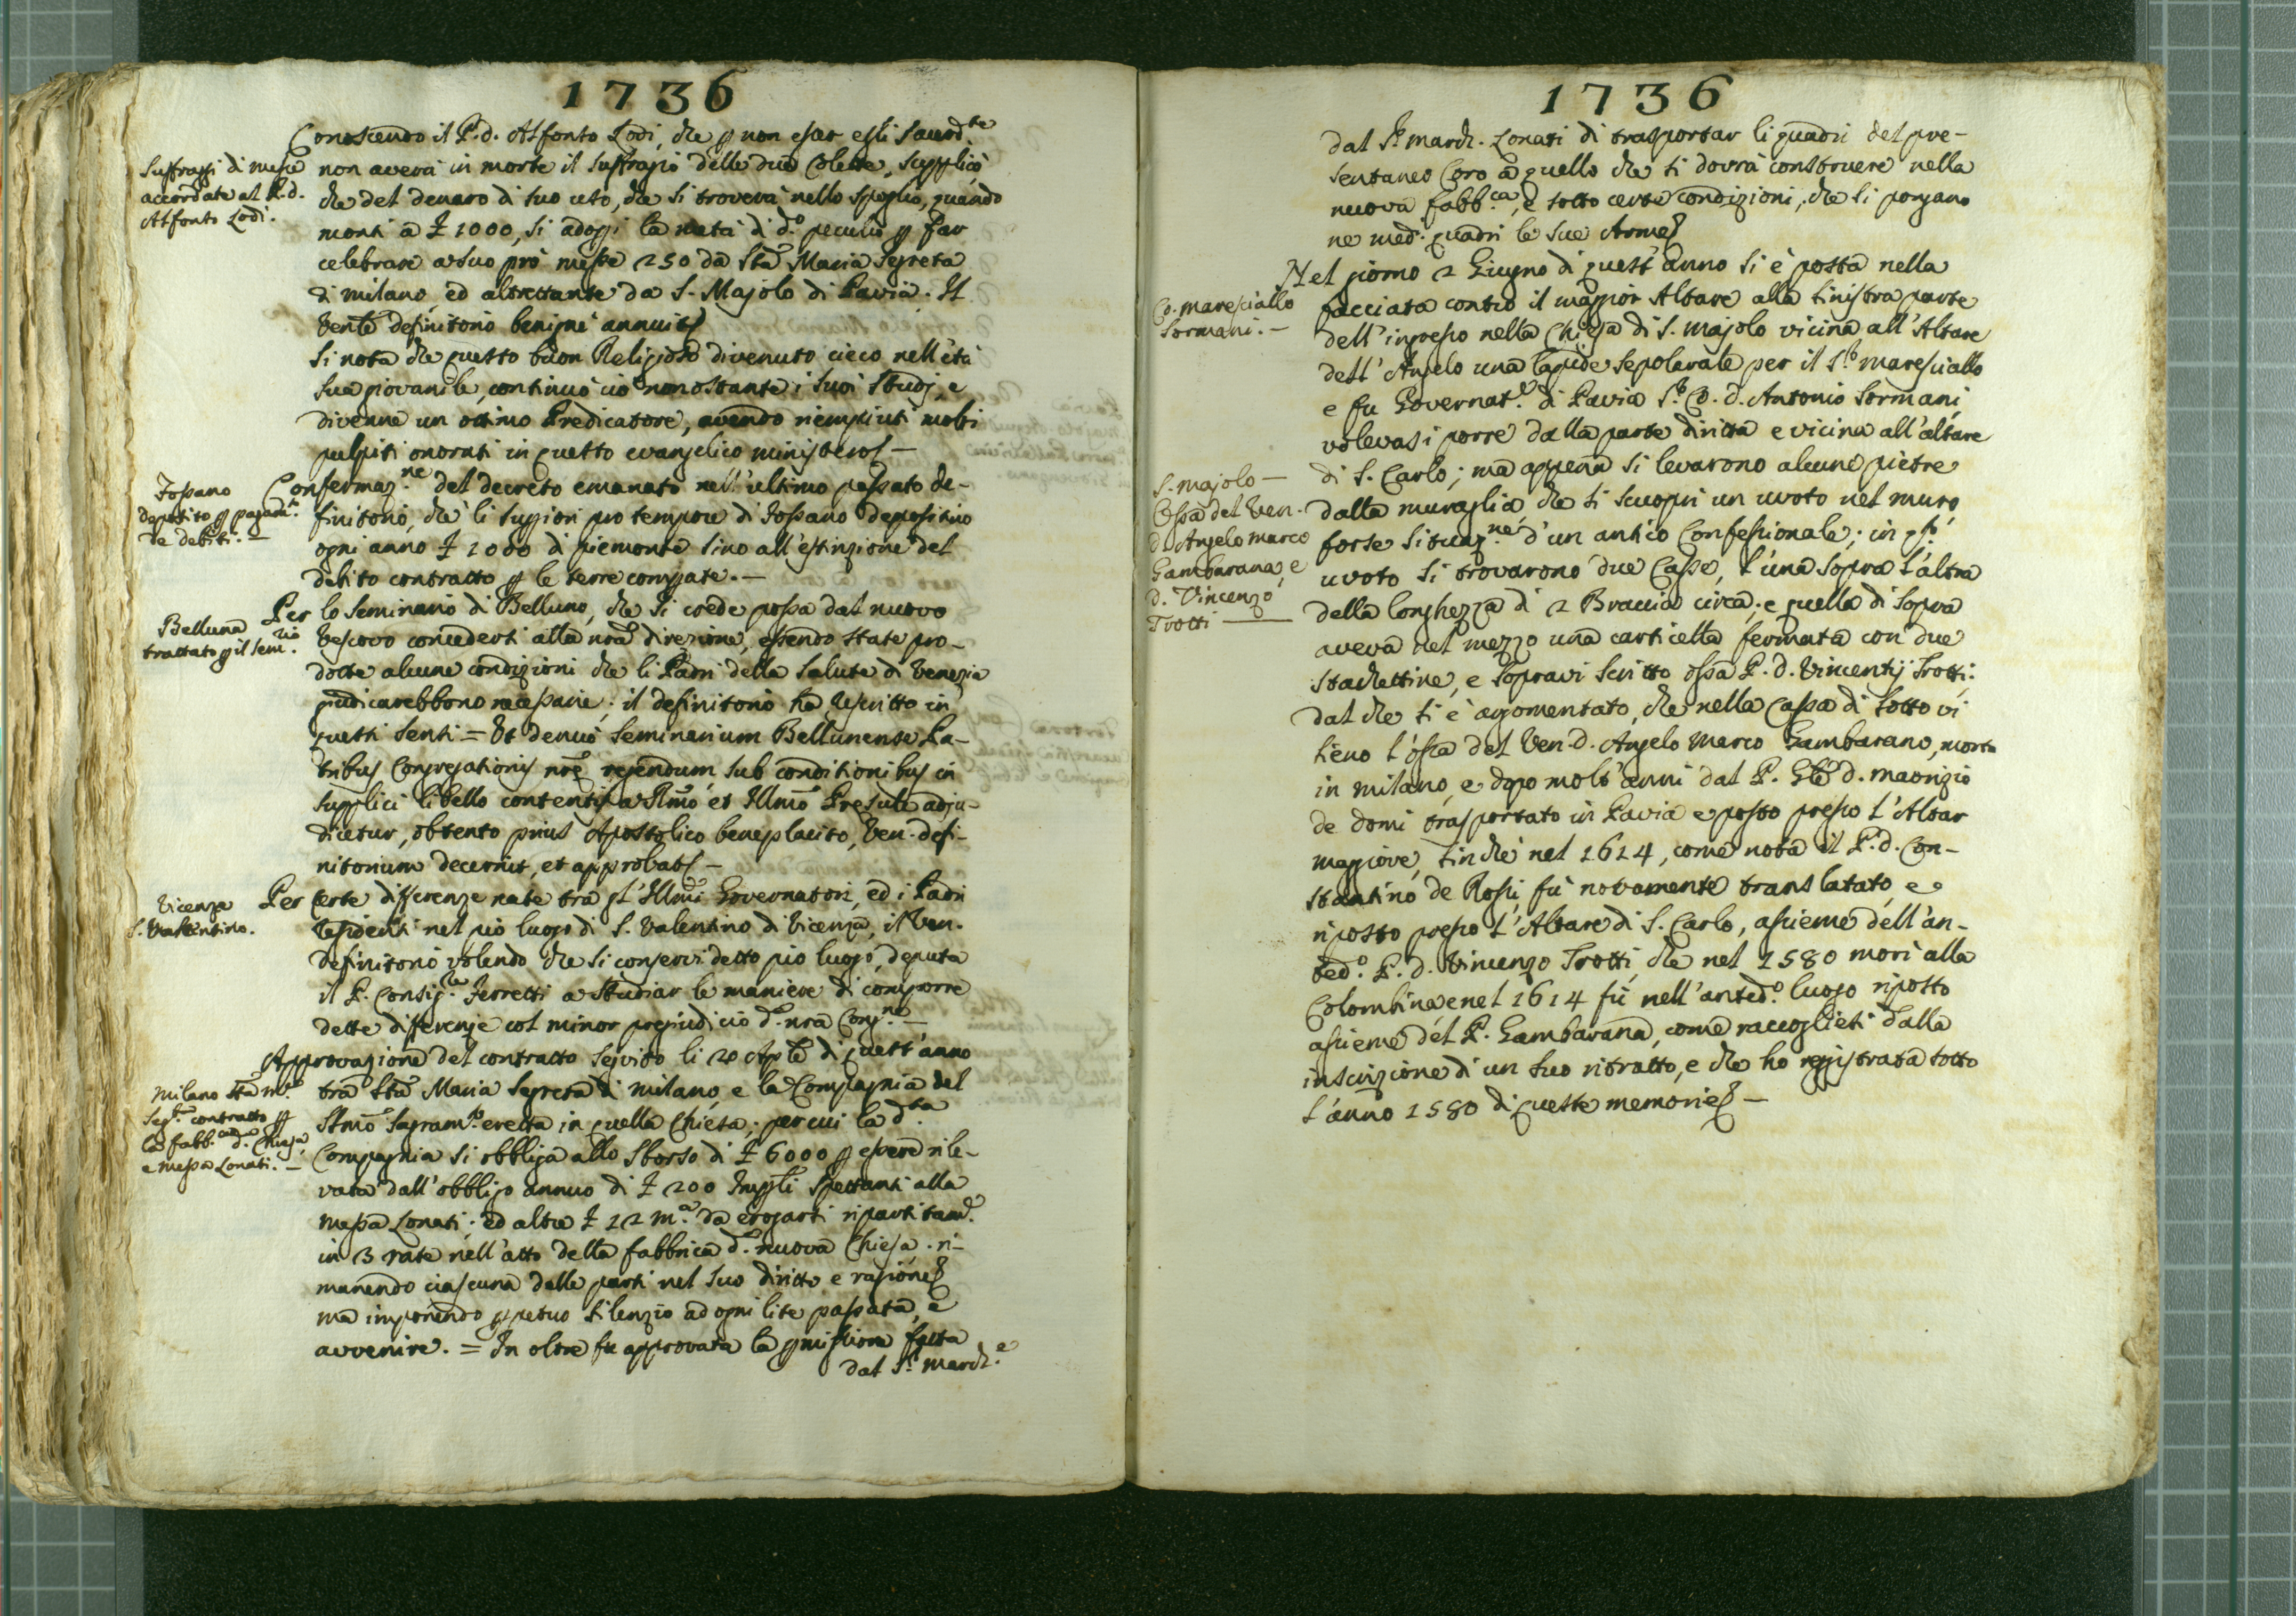 1736
Conoscendo il P. d. Alfonso Lodi, che p non esser esli sacerd.te
Suffragi di messe
accordate al P. d.
Alfonso Lodi.
non averà in morte il suffragio delle due Colette, supplicò
che del denaro di suo uso, che si troverà nello spoglio, quando
monti à £ 1000, si adopri la metà di d.o peculio p far
celebrare a suo prò messe 250 da Sta Maria Segreta
di milano, ed altrettante da S. Majolo di Pavia. Il
Ven.le definitorio benignè annuit
Si nota che questo buon Religioso divenuto cieco nell'età
sua giovanile, continuò ciò nonostante i suoi studj, e
divenne un ottimo Predicatore, avendo riempiuti molti
pulpiti onorati in questo evangelico ministero —
Fossano
deposito p pagam.to
de debiti. —
Confermaz.ne del decreto emanato nell'ultimo passato de-
finitorio, che li supriori pro tempore di Fossano depositino
ogni anno £ 1000 di piemonte sino all'estinzione del
debito contratto p le terre comprate. —
Belluna
trattato p il sem.rio
Per lo seminario di Belluno, che si crede possa dal nuovo
Vescovo concedersi alla nrã direzione, essendo state pro-
dotte alcune condizioni che li Padri della Salute di Venezia
giudicarebbono necessarie; il definitorio ha rescritto in
questi sensi = Ut denuò Seminarium Bellunense Pa-
tribus Congregationis nrẽ regendum sub conditionibus in
supplici libello contentis a Rmõ et Illmõ Presule adju-
dicetur, obtento prius Apostolico beneplacito, Ven. defi-
nitorium decernit, et approbat —
Vicenza
S. Valentino.
Per certe differenze nate tra gl'Illmi Governatori, ed i Padri
residenti nel pio luogo di S. Valentino di Vicenza, il Ven.
definitorio volendo che si conservi detto pio luogo, deputa
il P. Consig.re Ferretti a studiar le maniere di comporre
dette differenze col minor pregiudicio d. nrã Cong.ne —
Approvazione del contratto seguito li 20 Aple di quest'anno
milano Sta m.a
Seg.ta contratto p
la fabb.ca d. Chiesa,
e messa Lonati. —
trà Sta Maria Segreta di milano, e la Compagnia del
SSmõ Sagram.to eretta in quella Chiesa; per cui la d.ta
Compagnia si obbliga allo sborso di £ 6000 p essere rile-
vata dall'obbligo annuo di £ 200 Impli spettanti alla
messa Lonati; ed altre £ 12 m.a da erogarsi ripartitam.e
in 3 rate nell'atto della fabbrica d. nuova Chiesa. ri-
manendo ciascuna delle parti nel suo diritto e ragione
ma imponendo ppetuo silenzio ad ogni lite passata, e
avvenire. = In oltre fu approvata la pmissione fatta
dal S.r march.e
1736
dal S.r march. Lonati di trasportar li quadri del pre-
sentaneo Coro à quello che si dovrà construere nella
nuova fabb.ca, e sotto certe condizioni, che si pongano
ne med.i quadri le sue Arme
Nel giorno 2 Giugno di quest'anno si è posta nella
Co. maresciallo
Sormani. —
facciata contro il maggior Altare alla sinistra parte
dell'ingresso nella Chiesa di S. majolo vicina all'Altare
dell'Angelo una lapide sepolcrale per il S.r maresciallo
e fu Governat.e di Pavia S.r Co. d. Antonio Sormani
volevasi porre dalla parte diritta e vicina all'altare
S. majolo —
Ossa del Ven.
d. Angelo marco
Gambarana, e
d. Vincenzo
Trotti —
di S. Carlo; ma appena si levarono alcune pietre
dalla muraglia, che si scuoprì un uvoto nel muro
forse situaz.ne d'un antico Confessionale; in q.to
uvoto si trovarono due Casse, l'una sopra l'altra
della longhezza di 2 Braccia circa; e quella di sopra
aveva nel mezzo una carticella fermata con due
stachettine, e sopravi scritto ossa P. d. Vincentij Trotti;
dal che si è argomentato, che nella Cassa di sotto vi
sieno l'ossa del Ven. d. Angelo Marco Gambarano, morto
in milano, e dopo molt'anni dal P. Gle d. maorizio
de domi trasportato in Pavia e posto presso l'Altar
maggiore, sin che nel 1614, come nota il P. d. Con-
stantino de Rossi, fù novamente translatato, e
riposto presso l'Altare di S. Carlo, assieme dell'an-
ted.o P. d. Vincenzo Trotti, che nel 1580 morì alla
Colombina, e nel 1614 fù nell'anted.o luogo riposto
assieme del P. Gambarana, come raccogliesi dalla
inscrizione di un suo ritratto, e che ho registrata sotto
l'anno 1580 di queste memorie —